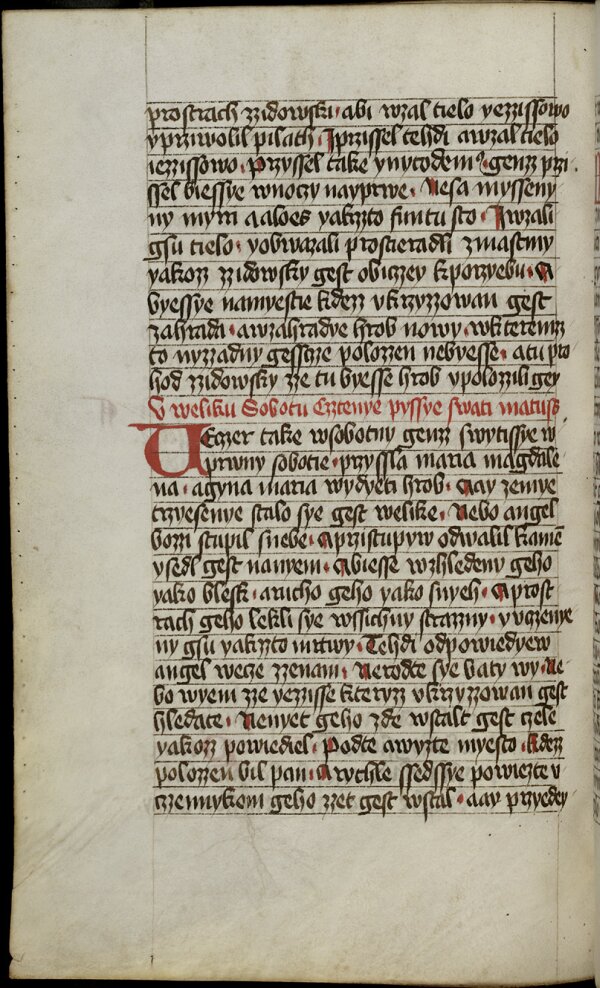 prostrach zzidowski · abi wzal tielo yezzissowo
y przwolil pilath · Iprzissel tehdi awzal tielo
iezzissowo · Przyssel take ynycodemus · genz przi
ssel biessye wnoczy nayprwe · Nesa mysseny
ny myrri aaloes yakzto funtu sto · Awzali
gsu tielo · yobwazali prostieradli zmastmy
yakozz zzidowsky gest obiczey kporzyebu · A
byessye namyestie kdezz vkrzyzzowan gest
zahrada · awzahradye hrob nowy · wkteremz
to nyzzadny gesstze polozzen nebyesse · atu pro
hod zzidowsky zze tu byesse hrob vpolozzili gey
V weliku Sobotu Cztenye pyssye swati matuss
VEczer take wsobotny genz swytissye w
prwny sobotie · przyssla maria magdale
na · agyna maria wydyeti hrob · Aay zemye
trzyesenye stalo sye gest welike · Nebo angel
bozzi stupil snebe · Aprzistupyw odwalil kamen
ysedl gest nanyem · Abiesse wzhledeny geho
yako blesk · arucho geho yako snyeh · Aprost
rach geho lekli sye wssichny strazzny · vvczyene
ny gsu yakzto mrtwy · Tehdi odpowiedyew
angel wecze zzenam · Nerodte sye baty wy · Ne
bo wyem zze yezzisse kteryzz vkrzyzzowan gest
hledate · Nenyet geho zde wstalt gest czele
yakozz powiediel · Podte awyzte myesto · Kdezz
polozzen bil pan · Arychle ssedssye powiezte v
czzennykom geho zzet gest wstal · aay przyedey